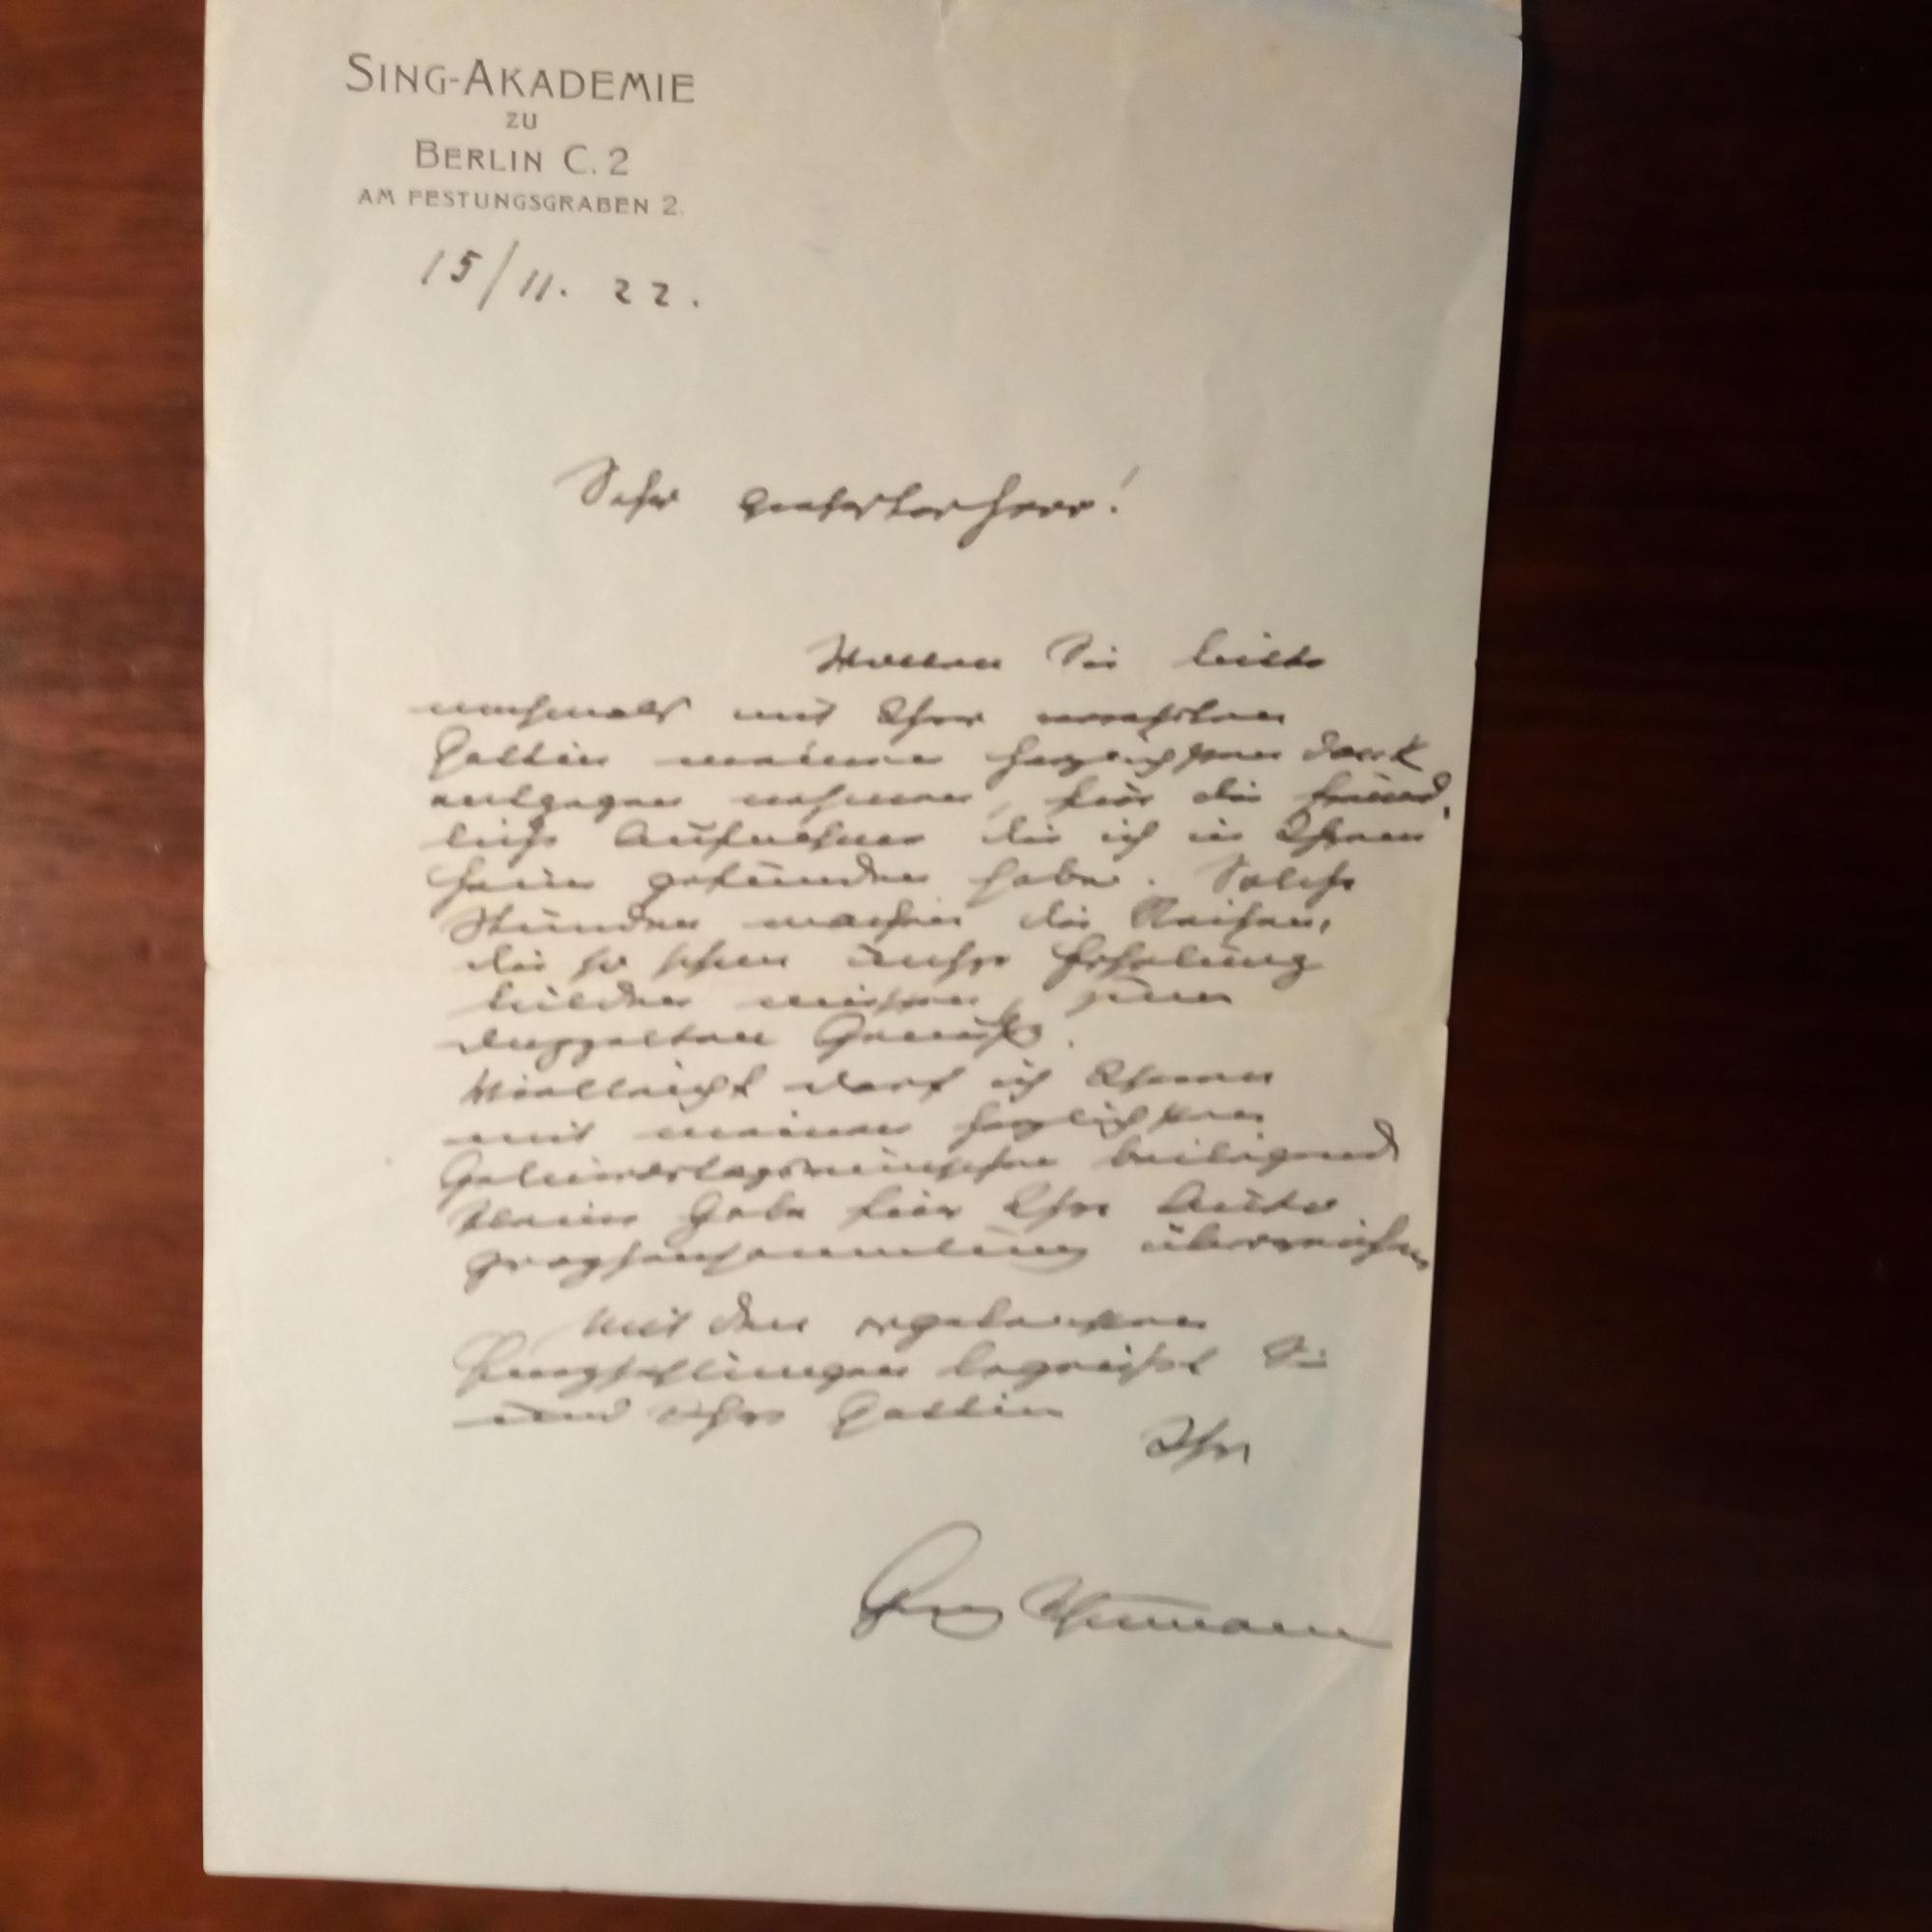 SING-AKADEMIE
ZU
BERLIN C. 2
AM FESTUNGSGRABEN 2.
15/11. 22.
Sehr geehrter Herr!
Wollen Sie bitte
nochmals mit Ihrer verehrten
Gattin meinen herzlichsten Dank
entgegen nehmen, für die freund-
liche Aufnahme die ich in Ihrem
Heim gefunden habe. Solche
Stunden machen die Reisen,
die so schon unsre Erholung
bilden müssen, zum
doppelten Genuß.
Vielleicht darf ich Ihnen
mit meinen herzlichsten
Geburtstagswünschen beiliegend
kleine Gabe für Ihre Auto
graphensammlung überreichen
Mit den ergebensten
Empfehlungen begrüßt Sie
und Ihre Gattin
Ihr
Georg Schumann